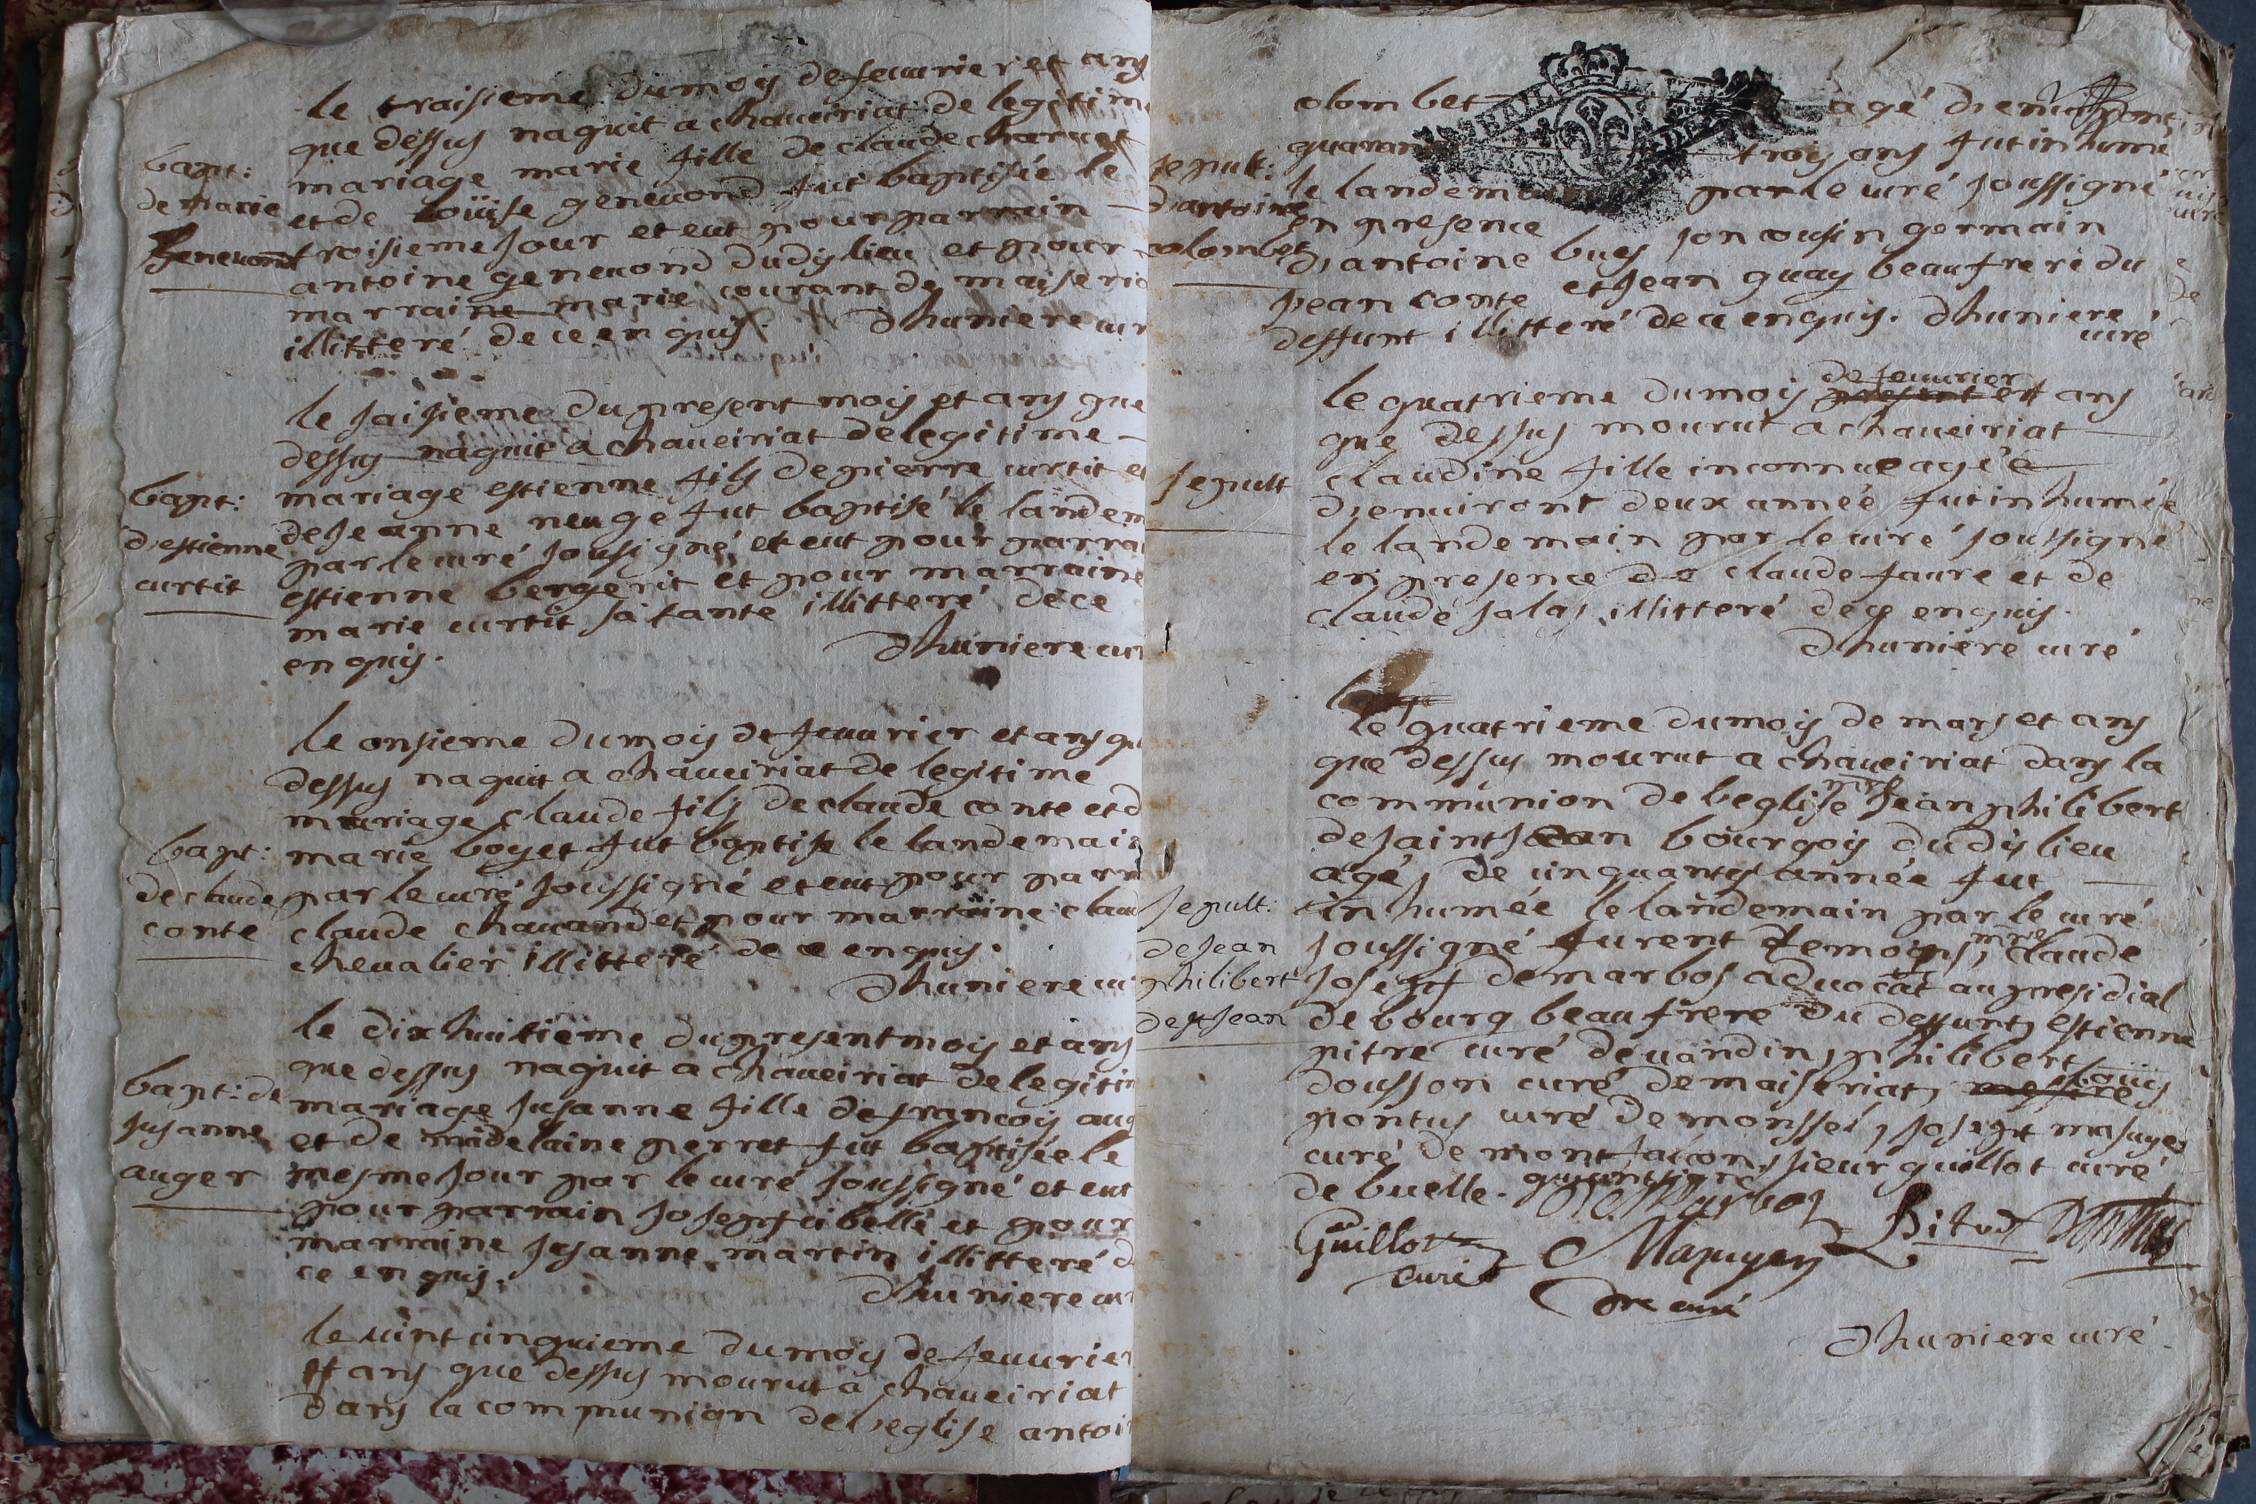 le traisieme du moys de feuurier et ans
que dessus naquit a chaueiriat de legitime
mariage marie fille de claude
et de loüise geneuond fut baptisée le
troisieme jour et eut pour parrain
antoine geneuond dudis lieu et pour
marraine marie courant de maiseria
illitteré de ce enquis. dhuniere cur
bapt:
de marie
geneuond
le saisieme du present mois et ans que
dessus naquit a chaueiriat de legitime
mariage estienne fils de pierre curtit et
de jeanne neuge fut baptisé le landem
par le curé sousigné et eut pour parra
estienne bergerit et pour marraine
marie curtit sa tante illitteré de ce
enquis. dhuniere cur
bapt:
d'estienne
curtit
le onsieme du mois de feuurier et ans que
dessus naquit a chaueiriat de legitime
mariage claude fils de claude conte et d
marie boyet fut baptise le landemain
par le curé soussigné et eut pour parr
claude chauand et pour marraine claud
cheualier illitteré de ce enquis.
dhuniere cu
bapt:
de claude
conte
le dix huitieme du present mois et ans
que dessus naquit a chaueiriat de legitim
mariage susanne fille de francois aug
et de madelaine perret fut baptisée le
mesme jour par le curé soussigné et eut
pour parrain joseph cibelle et pour
marraine susanne martin illitteré d
ce enquis. dhuniere cur
bapt: de
susanne
auger
le uint cinquieme du mois de feuurier
et ans que dessus mourut a chaueiriat
dans la communion de l'eglise antoi
colombet agé d'enuiront
quarant trois ans fut inhumé
le landemain par le curé soussigné
en presence
d'antoine bues son cousin germain
jean conte et jean guay beaufrere du
deffunt illitteré de ce enquis. dhuniere
curé
sepult:
d'antoine
colombet
le quatrieme du mois de feuurier et ans
que dessus mourut a chaueiriat
claudine fille inconnue agée
d'enuiront deux année fut inhumée
le landemain par le curé soussigné
en presence de claude faure et de
claude sala, illitteré de ce enquis.
dhuniere curé
sepult
le quatrieme du mois de mars et ans
que dessus mourut a chaueiriat dans la
communion de l'eglise mre jean philibert
de saint jean bourgois dudis lieu
agé, de cinquantes année fut
inhumée le landemain par le curé
soussigné furent temoins, mre claude
joseph demarbos aduocat au presidial
de bourg beaufrere du deffunt, estienne
pitre curé de uandin, philibert
dousson curé de maiseriat, louis
pontus curé de monssel, joseph masuyer
curé de montfaicon, sieur guillot curé
de buelle. qui ont signé
sepult:
de jean
philibert
de st jean
Demarbos
Guillot
curé
Masuyer
pre curé
dhuniere curé.